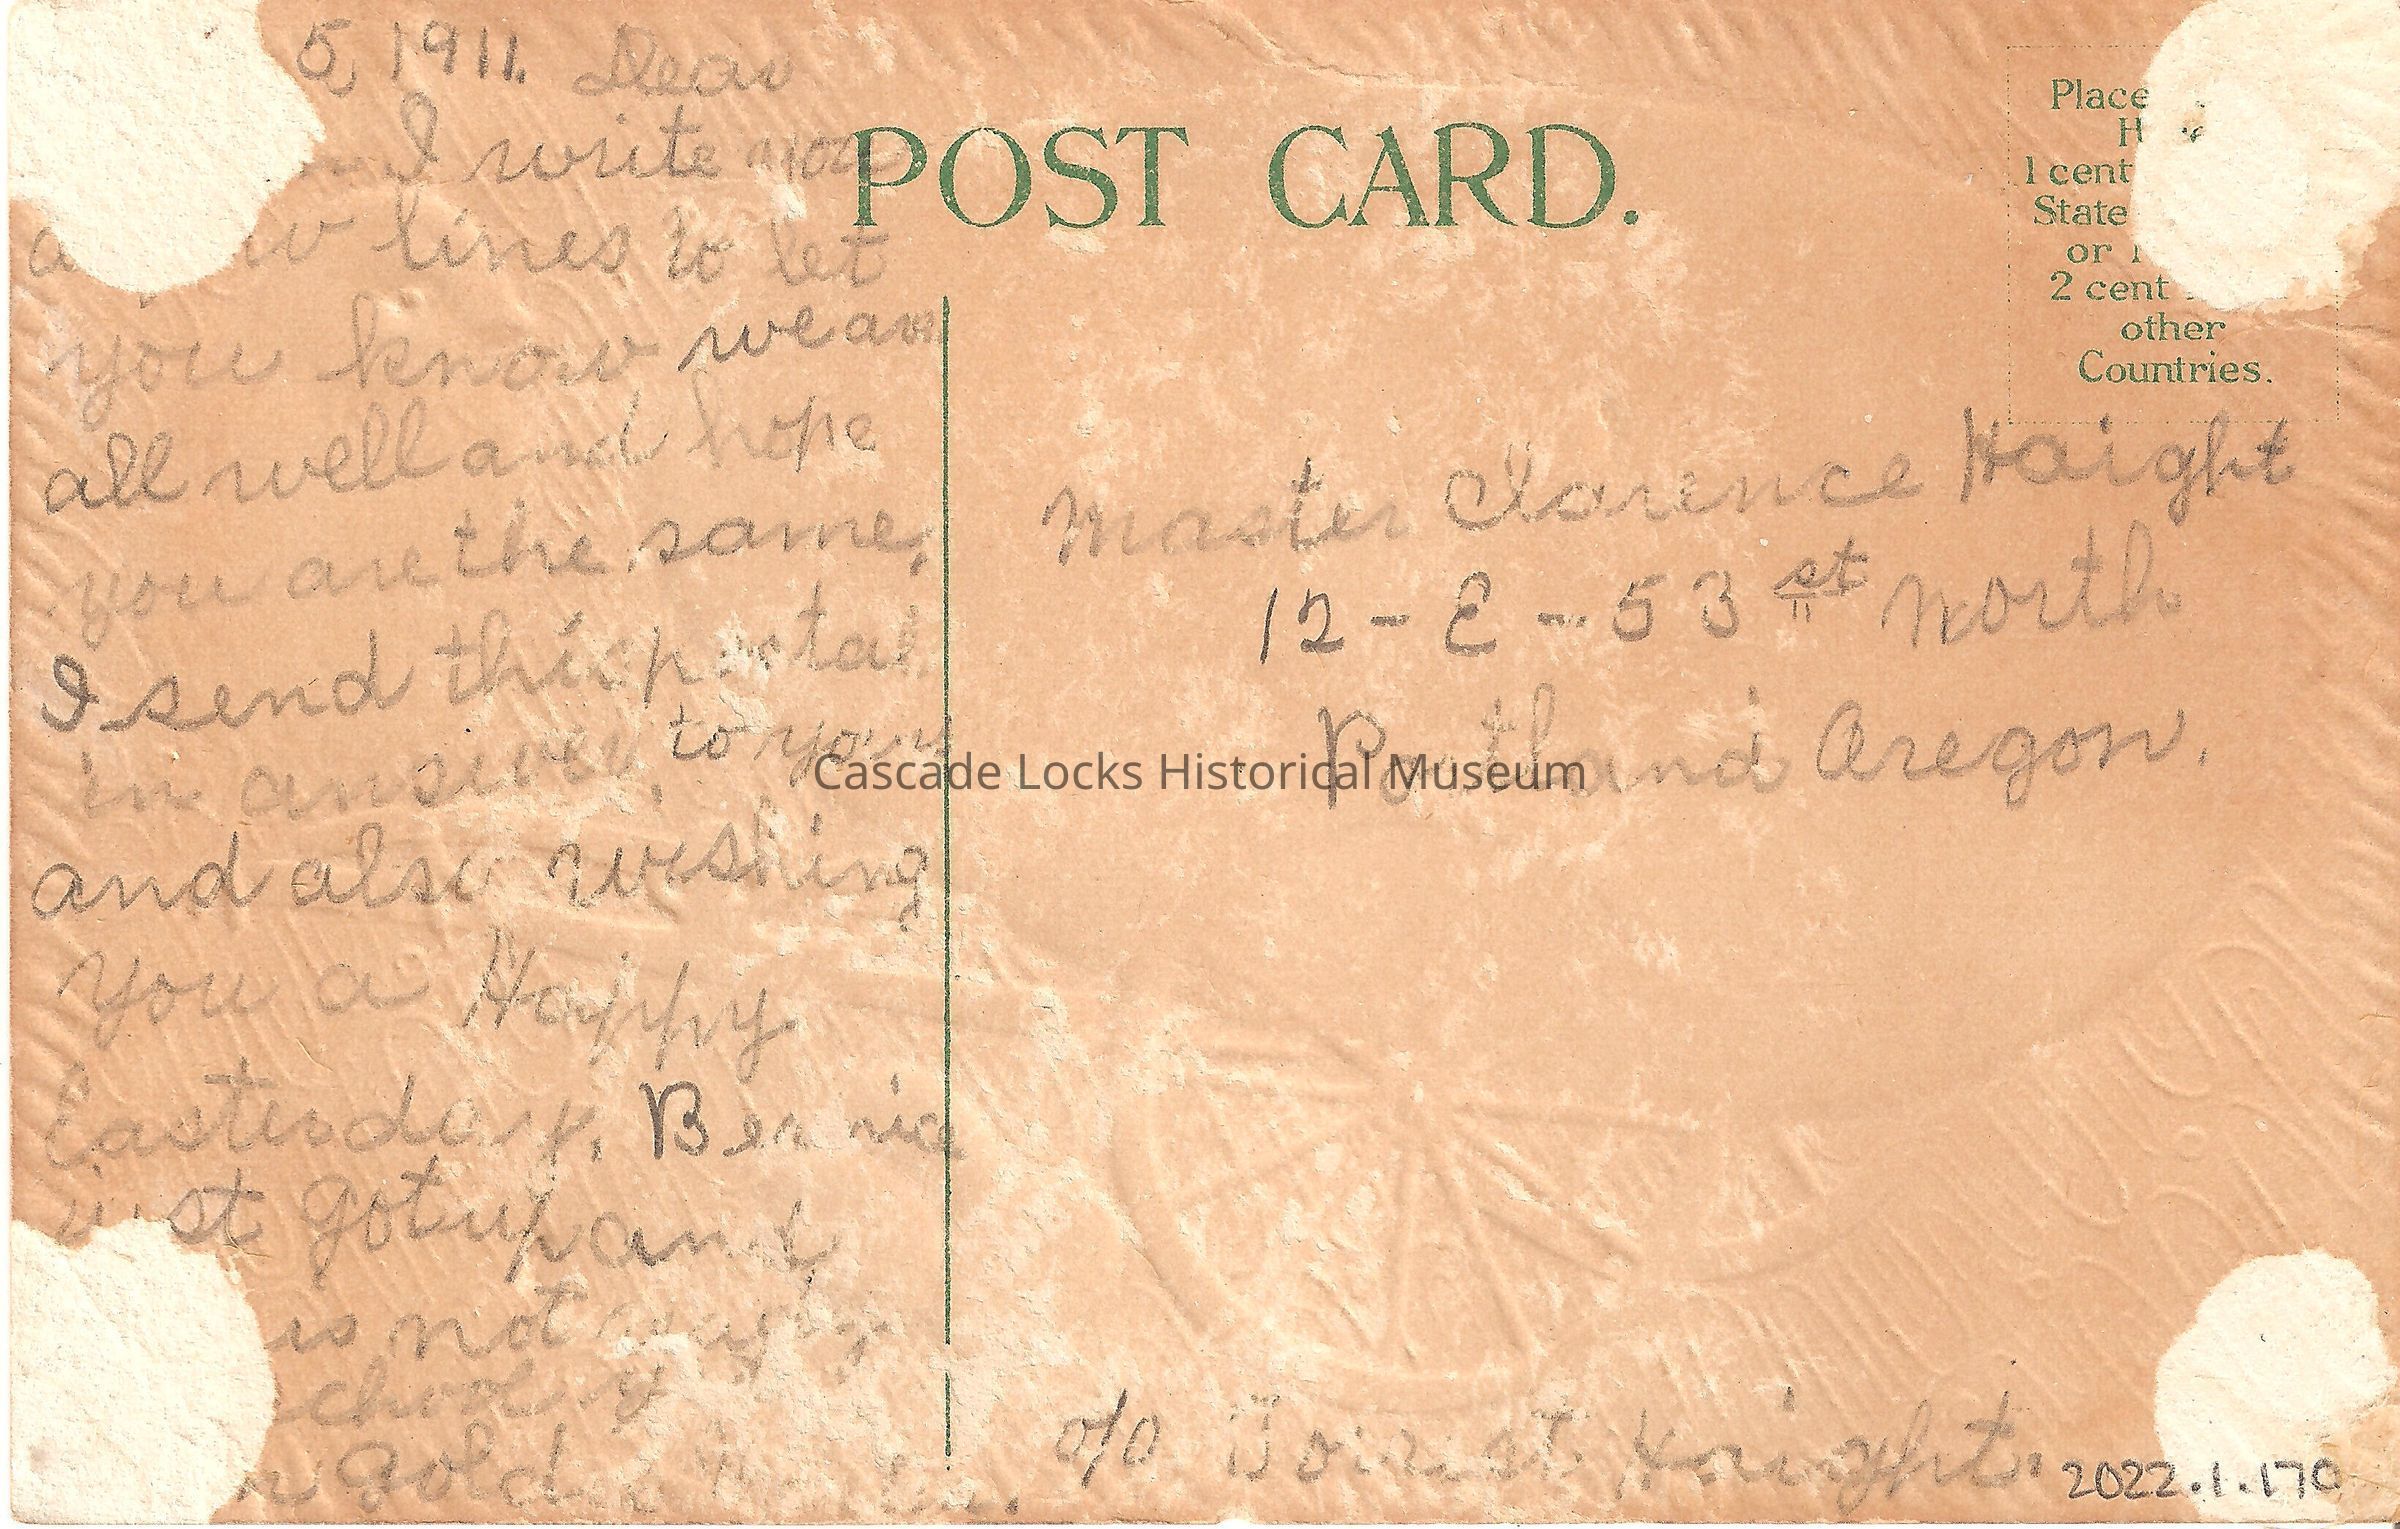 5, 1911. Dear
I write you
lines to let
you know we are
all well and hope
you are the same,
I send this postal
in answer to your
and also wishing
you a Happy
Easter day. Bernice
just got up and
is not ready
school
Goldie
POST CARD.
Place
H
1 cent
State
or
2 cent
other
Countries.
Master Clarence Haight
12 - E - 53 st North
Portland Oregon.
c/o Haight.
2022.1.170
Cascade Locks Historical Museum